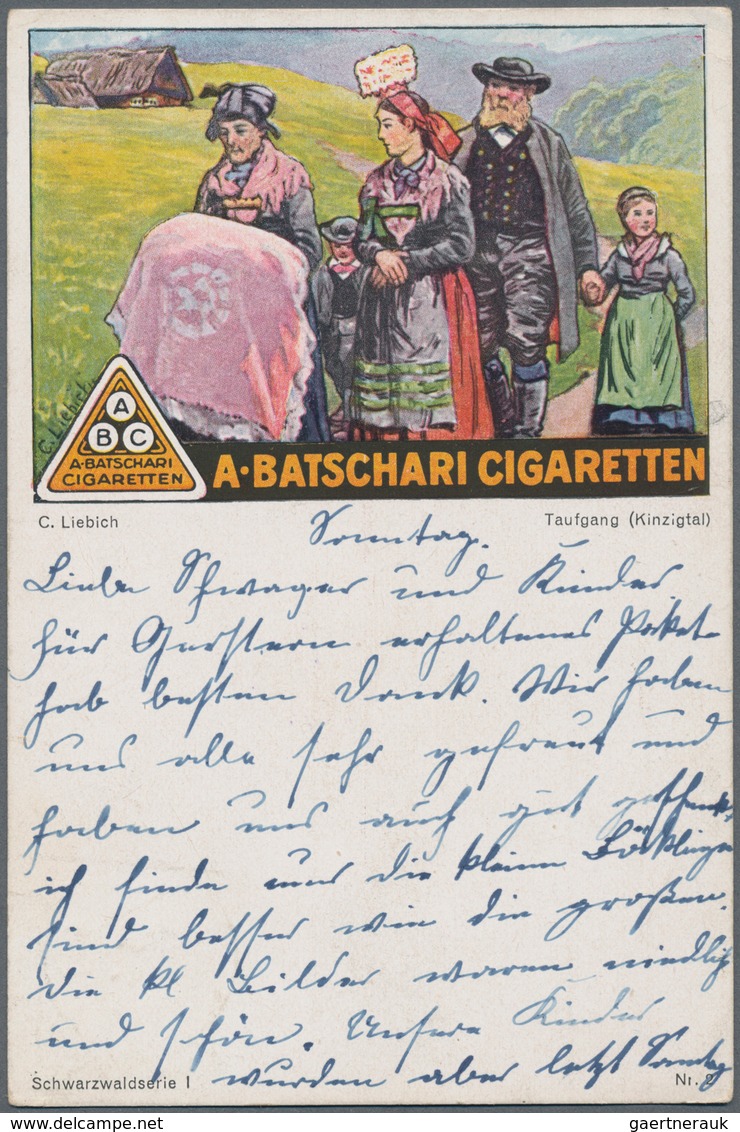 C. Liebich
A
B C
A·BATSCHARI
CIGARETTEN
A·BATSCHARI CIGARETTEN
C. Liebich
Taufgang (Kinzigtal)
Sonntag.
Liebe Schwager und Kinder
für erhaltenes Paket
hab besten Dank. Wir haben
uns alle sehr gefreut und
haben uns auch gut
ich finde die kleinen
sind besser wie die großen.
die kl Bilder waren niedlich
und schön. Unsere Kinder
wurden aber letzt Sonntag
Schwarzwaldserie I
Nr. 2
gaertnerauk
delcampe.net